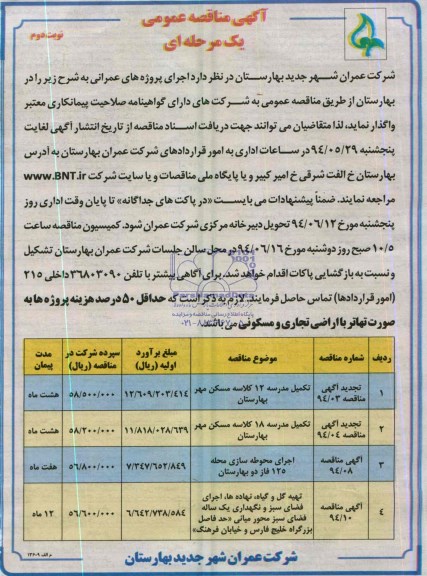 آگهی مناقصه عمومی
یک مرحله ای
نوبت دوم
شرکت عمران شهر جدید بهارستان در نظر دارد اجرای پروژه های عمرانی به شرح زیر را در
بهارستان از طریق مناقصه عمومی به شرکت های دارای گواهینامه صلاحیت پیمانکاری معتبر
واگذار نماید، لذا متقاضیان می توانند جهت دریافت اسناد مناقصه از تاریخ انتشار آگهی لغایت
پنجشنبه ۹۴/۰۵/۲۹ در ساعات اداری به امور قراردادهای شرکت عمران بهارستان به آدرس
بهارستان خ الفت شرقی خ امیر کبیر و یا پایگاه ملی مناقصات و یا سایت شرکت www.BNT.ir
مراجعه نمایند. ضمناً پیشنهادات می بایست «در پاکت های جداگانه» تا پایان وقت اداری روز
پنجشنبه مورخ ۹۴/۰۶/۱۲ تحویل دبیرخانه مرکزی شرکت عمران شود. کمیسیون مناقصه ساعت
۱۰/۵ صبح روز دوشنبه مورخ ۹۴/۰۶/۱۶ در محل سالن جلسات شرکت عمران بهارستان تشکیل
و نسبت به بازگشایی پاکات اقدام خواهد شد. برای آگاهی بیشتر با تلفن ۳۶۸۰۳۰۹۰ داخلی ۲۱۵
(امور قراردادها) تماس حاصل فرمایند. لازم به ذکر است که حداقل ۵۰ درصد هزینه پروژه ها به
صورت تهاتر با اراضی تجاری و مسکونی می باشد.
ردیف شماره مناقصه موضوع مناقصه مبلغ برآورد اولیه (ریال) سپرده شرکت در مناقصه (ریال) مدت پیمان
۱ تجدید آگهی مناقصه ۹۴/۰۳ تکمیل مدرسه ۱۲ کلاسه مسکن مهر بهارستان ۱۲/۶۰۹/۲۰۳/۴۱۴ ۵۸/۵۰۰/۰۰۰ هشت ماه
۲ تجدید آگهی مناقصه ۹۴/۰۴ تکمیل مدرسه ۱۸ کلاسه مسکن مهر بهارستان ۱۱/۸۱۸/۰۲۸/۶۳۹ ۵۸/۲۰۰/۰۰۰ هشت ماه
۳ آگهی مناقصه ۹۴/۰۸ اجرای محوطه سازی محله ۱۲۵ فاز دو بهارستان ۷/۳۴۷/۶۵۲/۸۴۹ ۵۶/۸۰۰/۰۰۰ هفت ماه
۴ آگهی مناقصه ۹۴/۱۰ تهیه گل و گیاه، نهاده ها، اجرای فضای سبز و نگهداری یک ساله فضای سبز محور میانی «حد فاصل بزرگراه خلیج فارس و خیابان فرهنگ» ۶/۶۴۲/۷۳۸/۵۸۴ ۵۶/۶۰۰/۰۰۰ ۱۲ ماه
شرکت عمران شهر جدید بهارستان